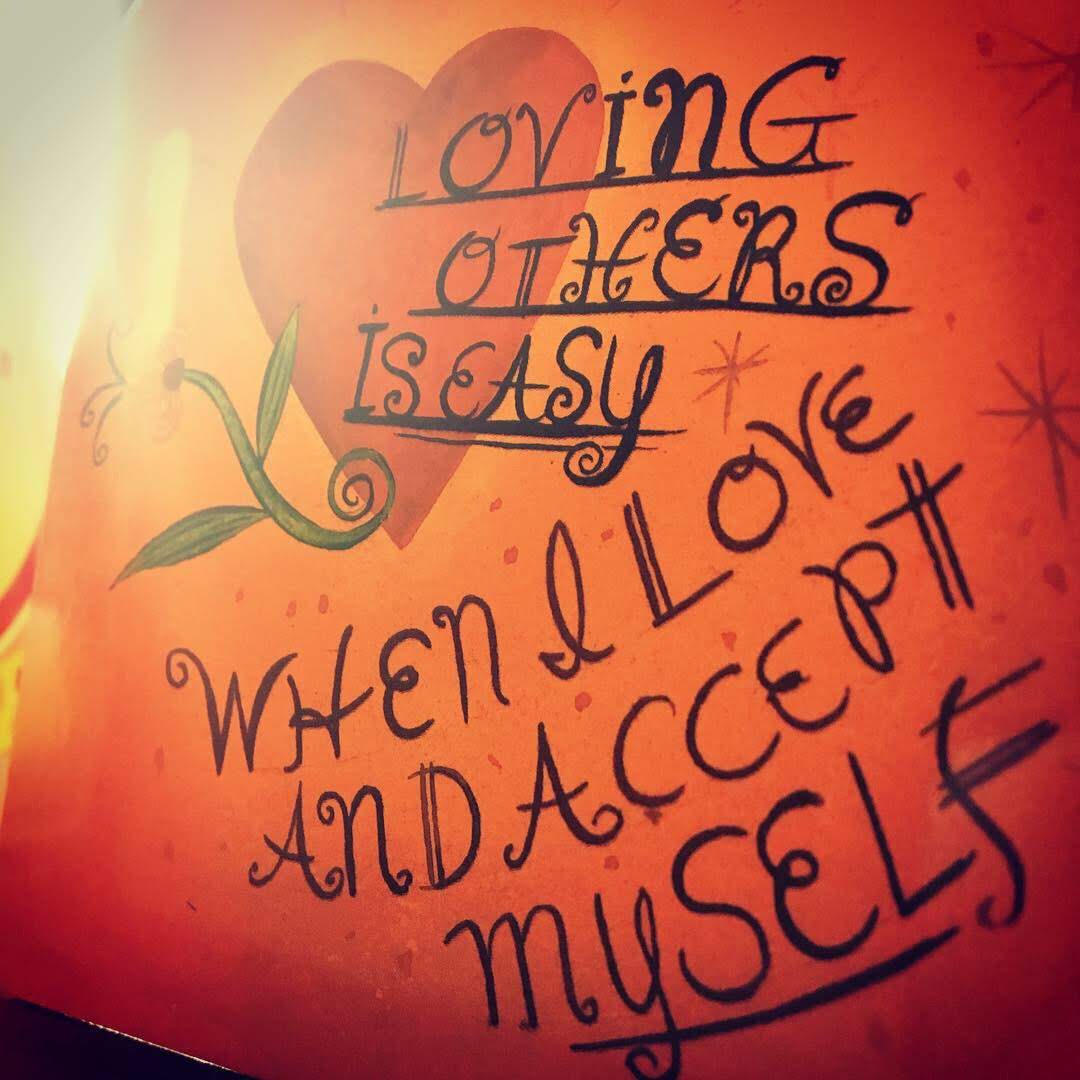 LOVING
OTHERS
IS EASY
WHEN I LOVE
AND ACCEPT
MYSELF